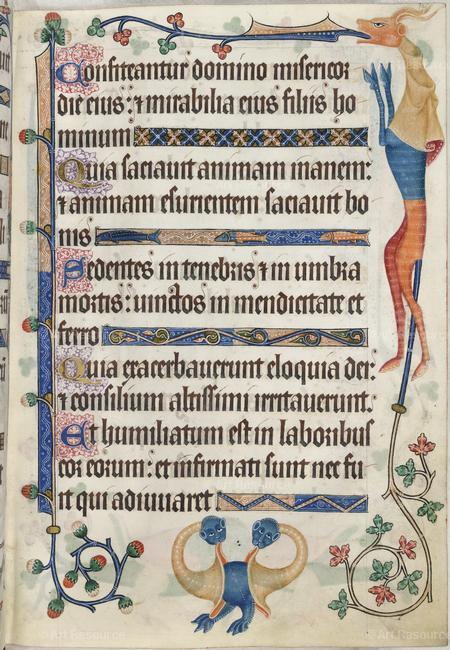 Confiteantur domino misericor
die eius: ⁊ mirabilia eius filiis ho
minum
Quia saciauit animam inanem:
⁊ animam esurientem saciauit bo
nis
Sedentes in tenebris ⁊ in umbra
mortis: uinctos in mendicitate et
ferro
Quia exacerbauerunt eloquia dei:
⁊ consilium altissimi irritauerunt.
Et humiliatum est in laboribus
cor eorum: et infirmati sunt nec fu
it qui adiuuaret
Art Resource
Art Resource